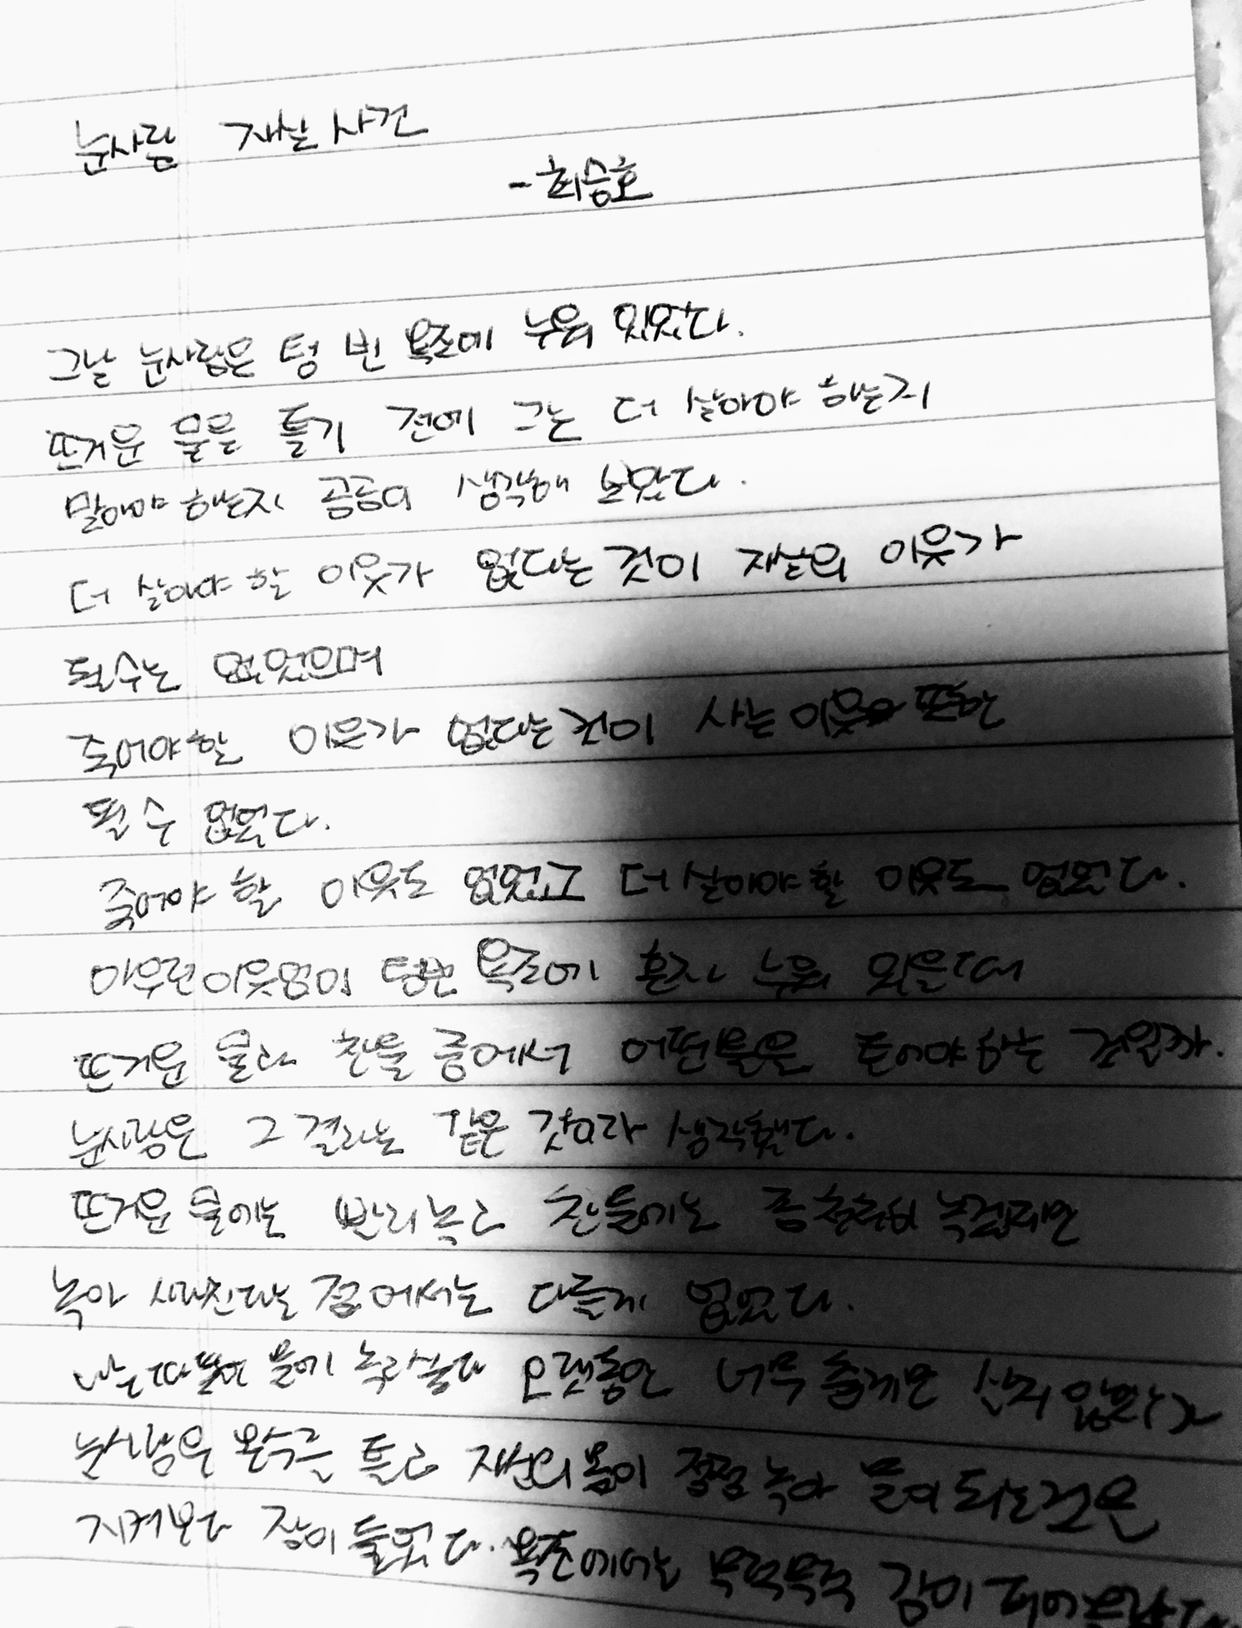 눈사람 자살 사건
- 최승호
그날 눈사람은 텅 빈 욕조에 누워 있었다.
뜨거운 물을 틀기 전에 그는 더 살아야 하는지
말아야 하는지 곰곰이 생각해 보았다.
더 살아야 할 이유가 없다는 것이 자살의 이유가
될수는 없었으며
죽어야 할 이유가 없다는 것이 사는 이유 또한
될 수 없었다.
죽어야 할 이유도 없었고 더 살아야 할 이유도 없었다.
아무런 이유없이 텅빈 욕조에 혼자 누워 있을때
뜨거운 물과 찬물 중에서 어떤물을 틀어야 하는 것일까.
눈사람은 그 결과는 같은 것이라 생각했다.
뜨거운 물에는 빨리 녹고 찬물에는 좀 천천히 녹겠지만
녹아 사라진다는 점에서는 다를게 없었다.
나는 따뜻한 물에 녹고 싶다 오랫동안 너무 춥게만 살지 않았는가
눈사람은 온수를 틀고 자신의 몸이 점점 녹아 물이 되는것을
지켜보다 잠이 들었다. 욕조에서는 무럭무럭 김이 피어올랐다